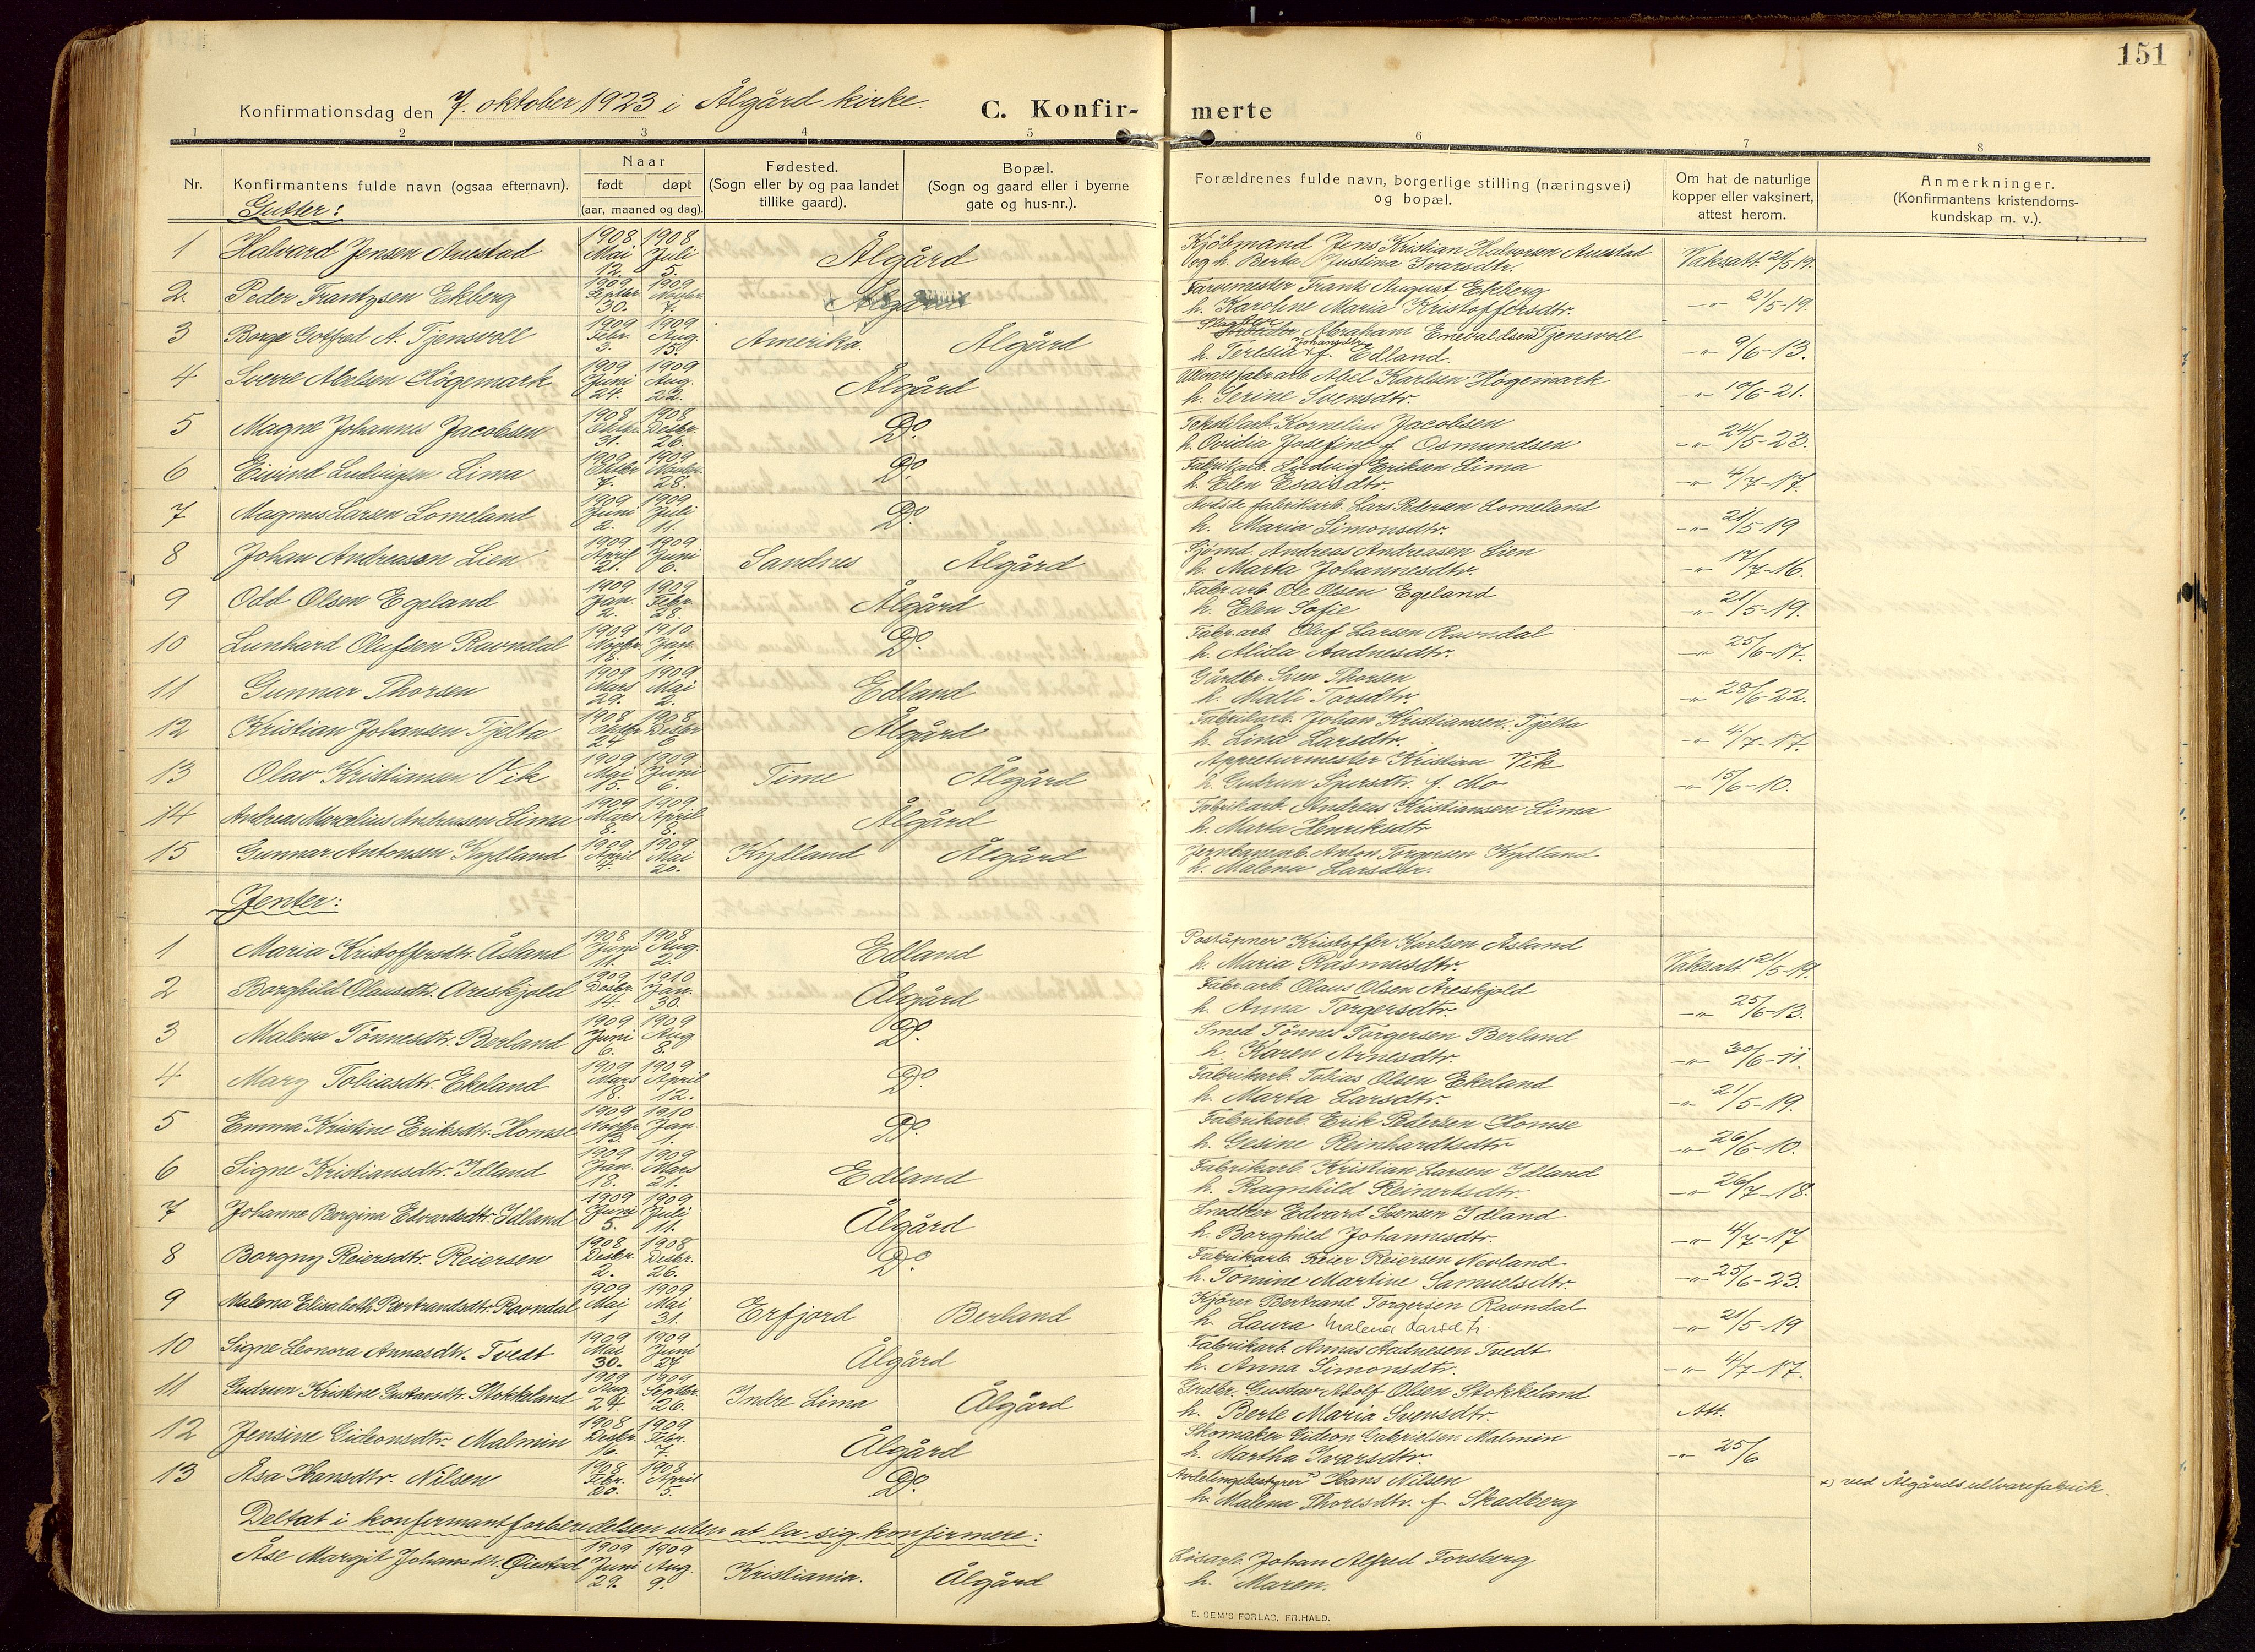 151
Konfirmationsdag den 7. oktober 1923 i Ålgård kirke.
C. Konfir- merte
1 2 3 4 5 6 7 8
Nr. Konfirmantens fulde navn (ogsaa efternavn). Naar født døpt (aar, maaned og dag). Fødested. (Sogn eller by og paa landet tillike gaard). Bopæl. (Sogn og gaard eller i byerne gate og hus-nr.). Forældrenes fulde navn, borgerlige stilling (næringsvei) og bopæl. Om hat de naturlige kopper eller vaksinert, attest herom. Anmerkninger. (Konfirmantens kristendoms- kundskap m. v.).
Gutter:
1 Halvard Jensen Auestad 1908 Mai 12. 1908 Juli 5. Ålgård Kjöbmand Jens Kristian Halvorsen Auestad og h. Berta Justina Ivarsdtr. Vaksatt. 21/5-19.
2. Peder Frantzsen Ekberg 1909 Septbr. 30. 1909 Novbr. 7. Ålgård Farvemester Frants August Ekberg h. Karoline Maria Kristoffersdtr. -"- 21/5-19.
3 Borge Gotfred A. Tjensvoll 1909 Febr. 3. 1909 Aug. 15. Amerika. Ålgård Slagter Abraham Enevaldsen Tjensvoll h. Teresia Johansdtr f. Edland. -"- 9/6-13.
4 Sverre Abelsen Högemark 1909 Juni 24. 1909 Aug. 22. Ålgård Ullvarefabr.arb. Abel Karlsen Högemark h. Serine Svensdtr. -"- 10/6-21.
5 Magne Johannes Jacobsen 1908 Oktbr. 31. 1908 Desbr. 26. Do. Tekstilarb. Kornelius Jacobsen h. Ovidia Josefine f. Osmundsen -"- 24/5-23.
6 Eivind Ludvigsen Lima 1909 Oktbr. 7. 1909 Novbr. 28. Do. Fabrikarb. Ludvig Eriksen Lima h. Elen Esaisdtr. -"- 4/7-17.
7 Magnus Larsen Lomeland 1909 Juni 2. 1909 Juli 11. Do. Avdöde fabrikarb. Lars Pedersen Lomeland h. Maria Simonsdtr. -"- 21/5-19
8 Johan Andreason Lien 1909 April 21. 1909 Juni 6. Sandnes Ålgård Sjömd. Andreas Andreasen Lien h. Marta Johannesdtr. -"- 17/7-16.
9 Odd Olsen Egeland 1909 Jan. 2. 1909 Febr. 28. Ålgård Fabr.arb. Ole Olsen Egeland h. Elen Sofie -"- 21/5-19.
10 Lunhard Olufsen Ravndal 1909 Novbr. 18. 1910 Jan. 1. Do. Fabr.arb. Oluf Larsen Ravndal h. Alida Aadnesdtr. -"- 25/6-17.
11 Gunnar Thorsen 1909 Mars 29. 1909 Mai 2. Edland Gårdbr. Sven Thorsen h. Malli Torsdtr. -"- 28/6-22.
12 Kristian Johansen Tjelta 1908 Oktbr 24. 1908 Desbr 6. Ålgård Fabrikarb. Johan Kristiansen Tjelta h. Lina Larsdtr. -"- 4/7-17.
13 Olav Kristiansen Vik 1909 Mai 15. 1909 Juni 6. Time Ålgård Appreturmester Kristian Vik h. Gudrun Sjursdtr. f. Mo -"- 15/6-10.
14 Andreas Marcelius Andreasen Lima 1909 Mars 8. 1909 April 8. Ålgård Fabrikarb. Andreas Kristiansen Lima h. Marta Henriksdtr
15 Gunnar Antonsen Kydland 1909 April 4. 1909 Mai 20. Kydland Ålgård Jernbanearb. Anton Torgersen Kydland h. Malena Larsdtr.
Jenter:
1 Maria Kristoffersdtr. Åsland 1908 Juni 11. 1908 Aug. 2. Edland Poståpner Kristoffer Karlsen Åsland h. Maria Rasmusdtr. Vaksatt. 21/5-19.
2 Borghild Olausdtr. Areskjold 1909 Desbr. 14. 1910 Jan. 30. Ålgård Fabr.arb. Olaus Olsen Åreskjold h. Anna Torgersdtr. -"- 25/6-13.
3 Malena Tönnesdtr. Berland 1909 Juni 6. 1909 Aug. 8. Do. Smed Tönnes Torgersen Berland h. Karen Arnesdtr. -"- 30/6-11.
4 Mary Tobiasdtr. Ekeland 1909 Mars 18. 1909 April 12. Do. Fabrikarb. Tobias Olsen Ekeland h. Marta Larsdtr. -"- 21/5-19.
5 Emma Kristine Eriksdtr. Homse 1909 Novbr. 13. 1910 Jan. 1. Do. Fabrikarb. Erik Pedersen Homse h. Gesine Reinhardtsdtr -"- 26/6-10.
6 Signe Kristiansdtr. Idland 1909 Jan. 18. 1909 Mars 21. Edland Fabrikarb. Kristian Larsen Idland h. Ragnhild Reinertsdtr. -"- 26/7-18.
7 Johanne Borgina Edvardsdtr. Idland 1909 Juni 5. 1909 Juli 11. Ålgård Snedker Edvard Svensen Idland h. Borghild Johannesdtr. -"- 4/7-17
8 Borgny Reiersdtr. Reiersen 1908 Desbr. 2. 1908 Desbr. 26. Do. Fabrikarb. Reier Reiersen Nevland h. Tomine Martine Samuelsdtr. -"- 25/6-23.
9 Malena Elisabeth Bertrandsdtr. Ravndal 1909 Mai 1 1909 Mai 31. Erfjord Berland Kjörer Bertrand Torgersen Ravndal h. Laura Malena Larsdtr. -"- 21/5-19
10 Signe Leonora Annasdtr. Tvedt 1909 Mai 30. 1909 Juni 27 Ålgård Fabrikarb. Annas Aadnesen Tvedt h. Anna Simonsdtr. -"- 4/7-17.
11 Gudrun Kristine Gustavsdtr. Stokkeland 1909 Aug. 24. 1909 Septbr. 26. Indre Lima Ålgård Grdbr. Gustav Adolf Olsen Stokkeland h. Berte Maria Svensdtr. Att.
12 Jensine Gideonsdtr. Malmin 1908 Desbr. 16. 1909 Febr. 7. Ålgård Skomaker Gideon Gabrielsen Malmin h. Martha Ivarsdtr. -"- 25/6
13 Åsa Hansdtr. Nilsen 1908 Febr. 20. 1908 April 5. Do. Avdelingsbestyrer x) Hans Nilsen h. Malena Thoresdtr. f. Skadberg x) ved Ålgårds ullvarefabrik.
Deltat i konfirmantforberedelsen uten at la sig konfirmere:
Åse Margit Johansdtr. Öiestad 1909 Juni 29. 1909 Aug. 9. Kristiania. Ålgård Lösarb. Johan Alfred Forsberg h. Maren.
E. SEM'S FORLAG, FR.HALD.